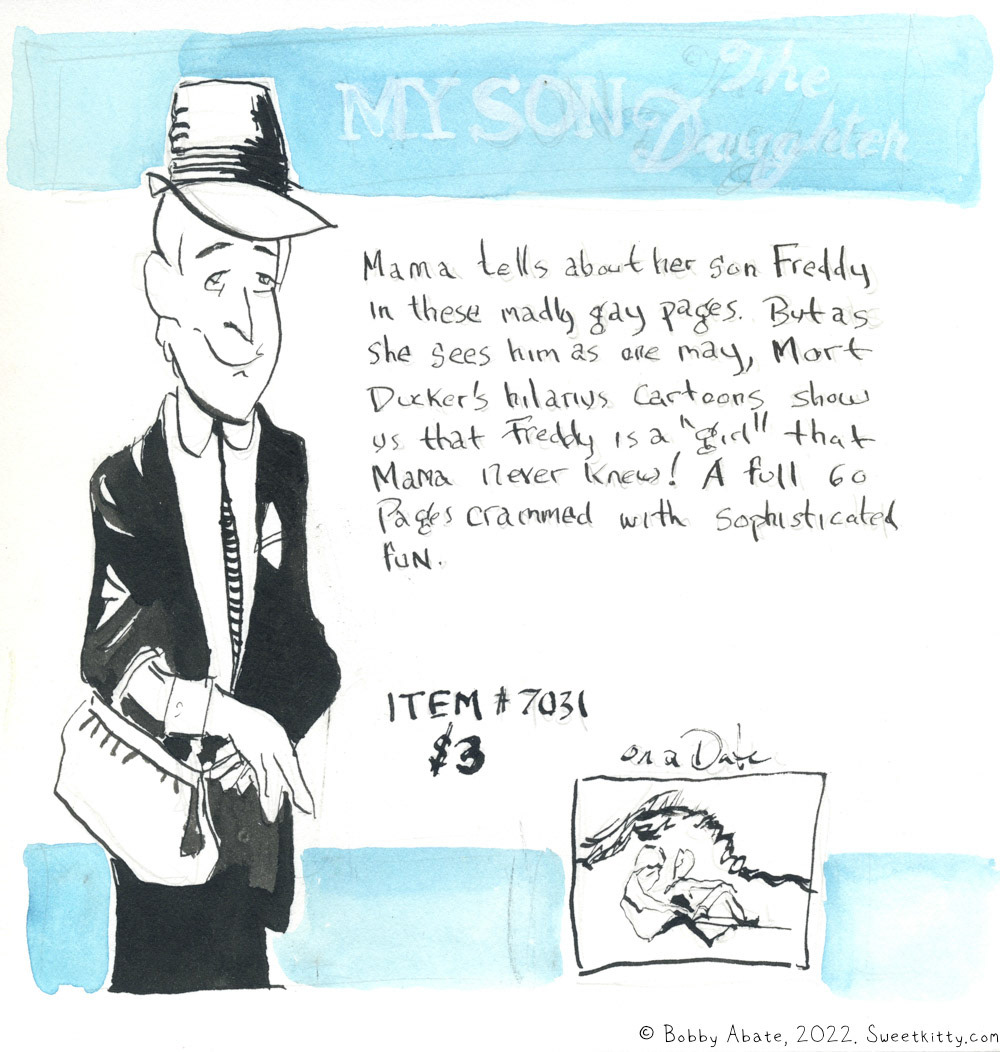 MY SON The
Daughter
Mama tells about her son Freddy
in these madly gay pages. But as
she sees him as one may, Mort
Ducker's hilarius cartoons show
us that Freddy is a "girl" that
Mama never knew! A full 60
Pages crammed with sophisticated
fun.
ITEM # 7031
$3
on a Date
© Bobby Abate, 2022. Sweetkitty.com